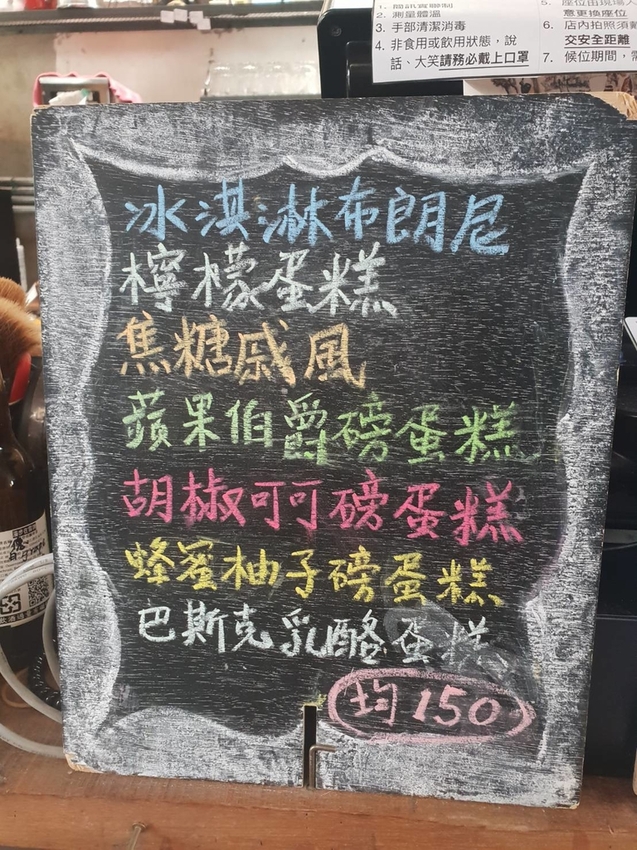 2. 測量體溫
3. 手部清潔消毒
4. 非食用或飲用狀態，說
話、大笑請務必戴上口罩
意更換座位
6. 店內拍照須戴
交安全距離
7. 候位期間，需
冰淇淋布朗尼
檸檬蛋糕
焦糖戚風
蘋果伯爵磅蛋糕
胡椒可可磅蛋糕
蜂蜜柚子磅蛋糕
巴斯克乳酪蛋糕
均150